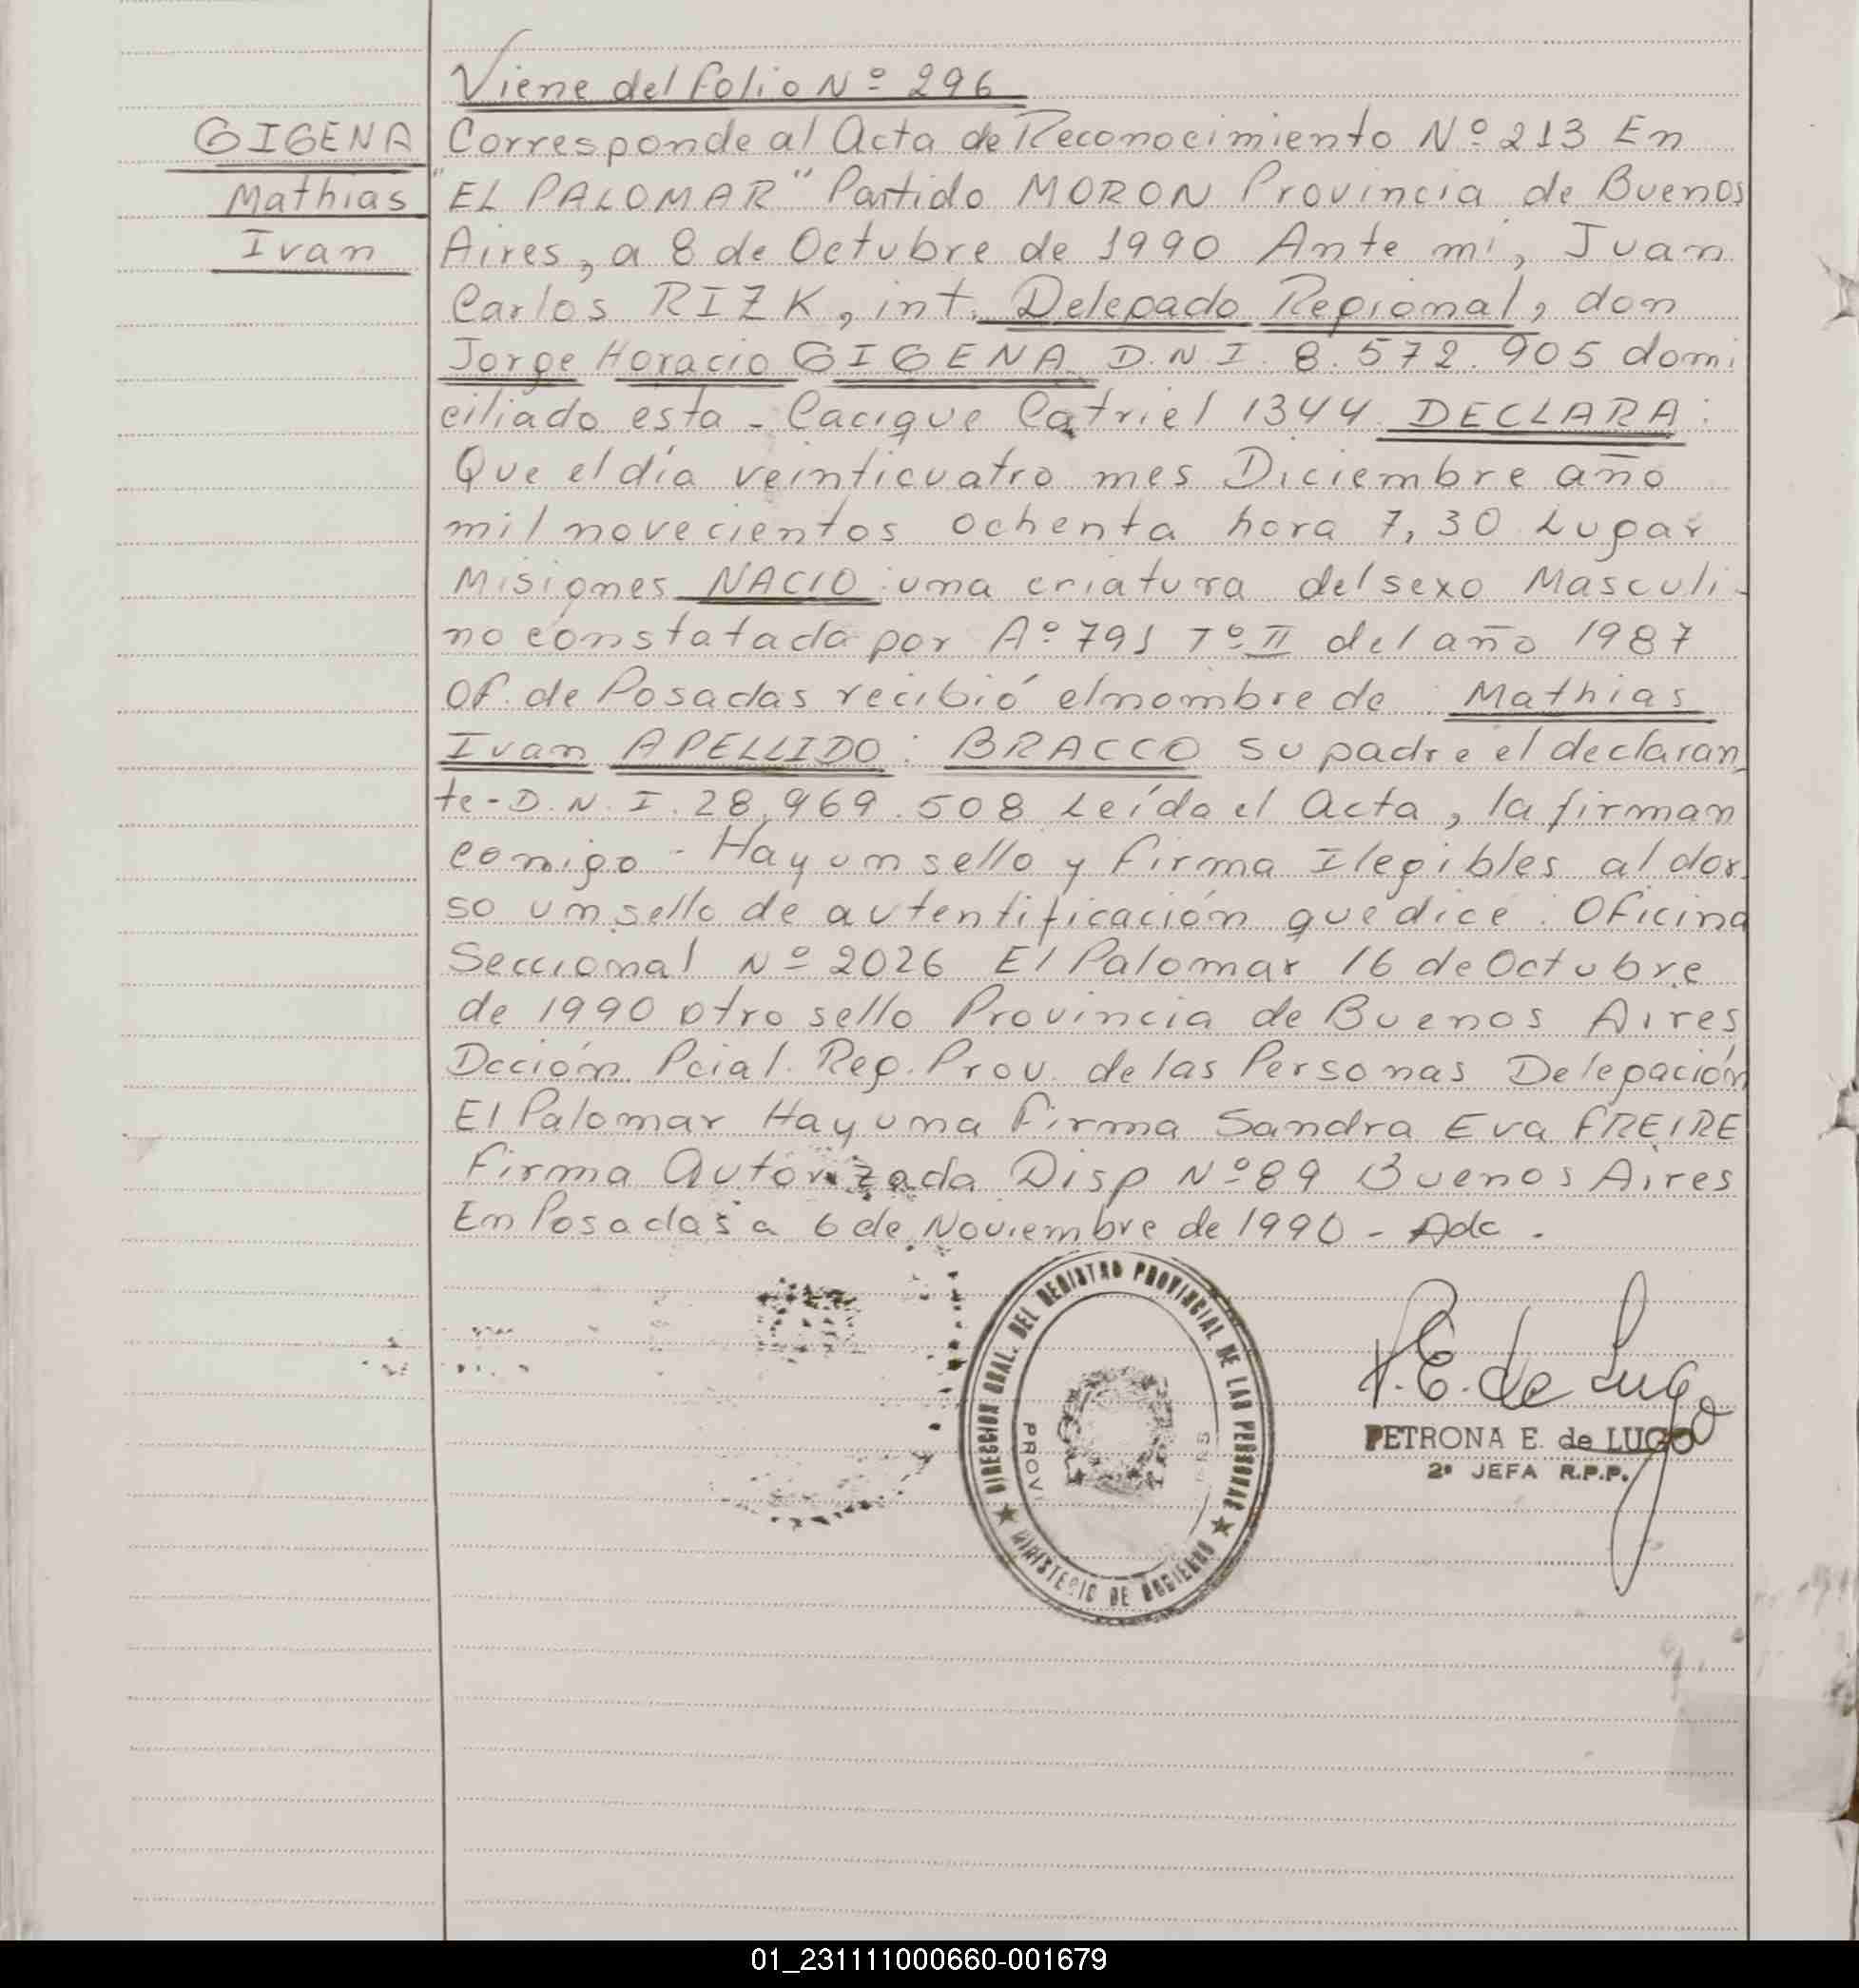 Viene del folio Nº 296
GIGENA
Mathias
Ivan
Corresponde al Acta de Reconocimiento Nº 213 En
"EL PALOMAR" Partido MORON Provincia de Buenos
Aires, a 8 de Octubre de 1990 Ante mí, Juan
Carlos RIZK, int. Delegado Regional, don
Jorge Horacio GIGENA D.N.I. 8.572.905 domi
ciliado esta - Cacique Catriel 1344 DECLARA:
Que el día veinticuatro mes Diciembre año
mil novecientos ochenta hora 7,30 Lugar
Misiones NACIO: una criatura del sexo Masculi-
no constatada por Aº 791 Tº II del año 1987
Of. de Posadas recibió el nombre de: Mathias
Ivan APELLIDO: BRACCO su padre el declaran
te - D.N.I. 28.969.508 Leída el Acta, la firman
comigo - Hay un sello y firma Ilegibles al dor
so un sello de autentificación que dice: Oficina
Seccional Nº 2026 El Palomar 16 de Octubre
de 1990 otro sello Provincia de Buenos Aires
Dcción Pcial. Reg. Prov. de las Personas Delegación
El Palomar Hay una Firma Sandra Eva FREIRE
Firma Autorizada Disp Nº 89 Buenos Aires
En Posadas a 6 de Noviembre de 1990 - Adc.
DIRECCION GRAL. DEL REGISTRO PROVINCIAL DE LAS PERSONAS
MINISTERIO DE GOBIERNO
P.E. de Lugo
PETRONA E. de LUGO
2ª JEFA R.P.P.
01_231111000660-001679